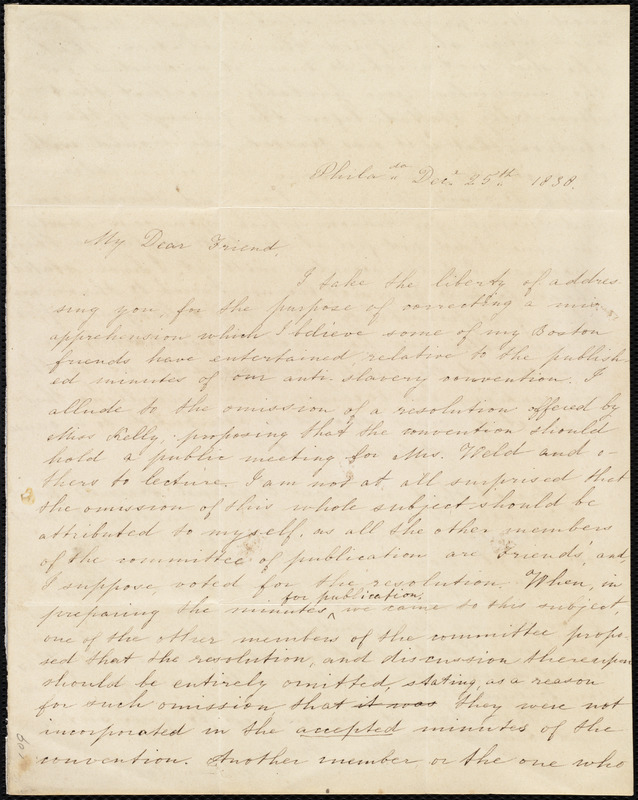 Philada Decr 25th 1838.
My Dear Friend,
I take the liberty of addres-
sing you, for the purpose of correcting a mis-
apprehension which I believe some of my Boston
friends have entertained relative to the publish-
ed minutes of our anti-slavery convention. I
allude to the omission of a resolution offered by
Miss Kelly, proposing that the convention should
hold a public meeting for Mrs. Weld and o-
thers to lecture. I am not at all surprised that
the omission of this whole subject should be
attributed to myself, as all the other members
of the committee of publication are Friends', and,
I suppose, voted for the resolution. When, in
for publication,
preparing the minutes ^ we came to this subject,
one of the other members of the committee propo-
sed that the resolution, and discussion thereupon
should be entirely omitted, stating, as a reason
for such omission that it was they were not
incorporated in the accepted minutes of the
convention. Another member or the one who
609